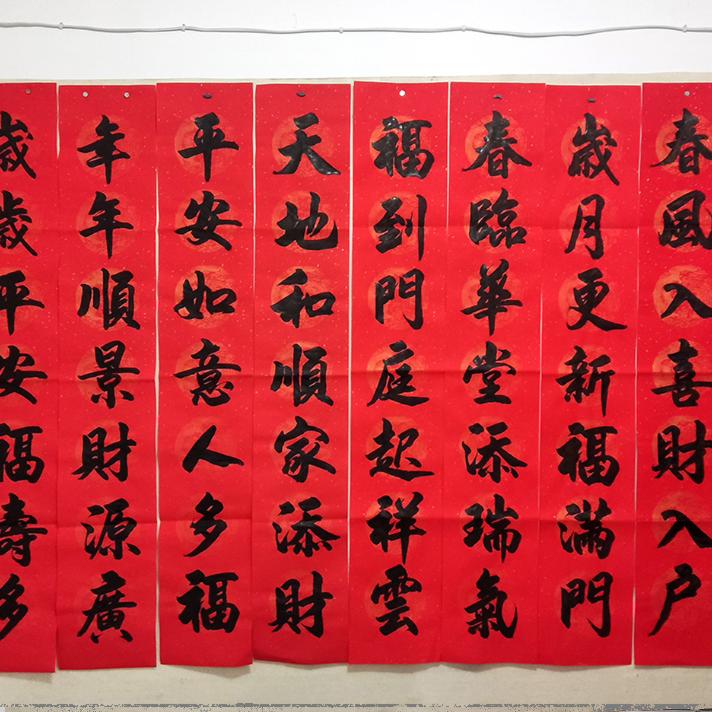 春風入喜財入户
歲月更新福滿門
春臨華堂添瑞氣
福到門庭起祥雲
天地和順家添財
平安如意人多福
年年順景財源廣
歲歲平安福壽多